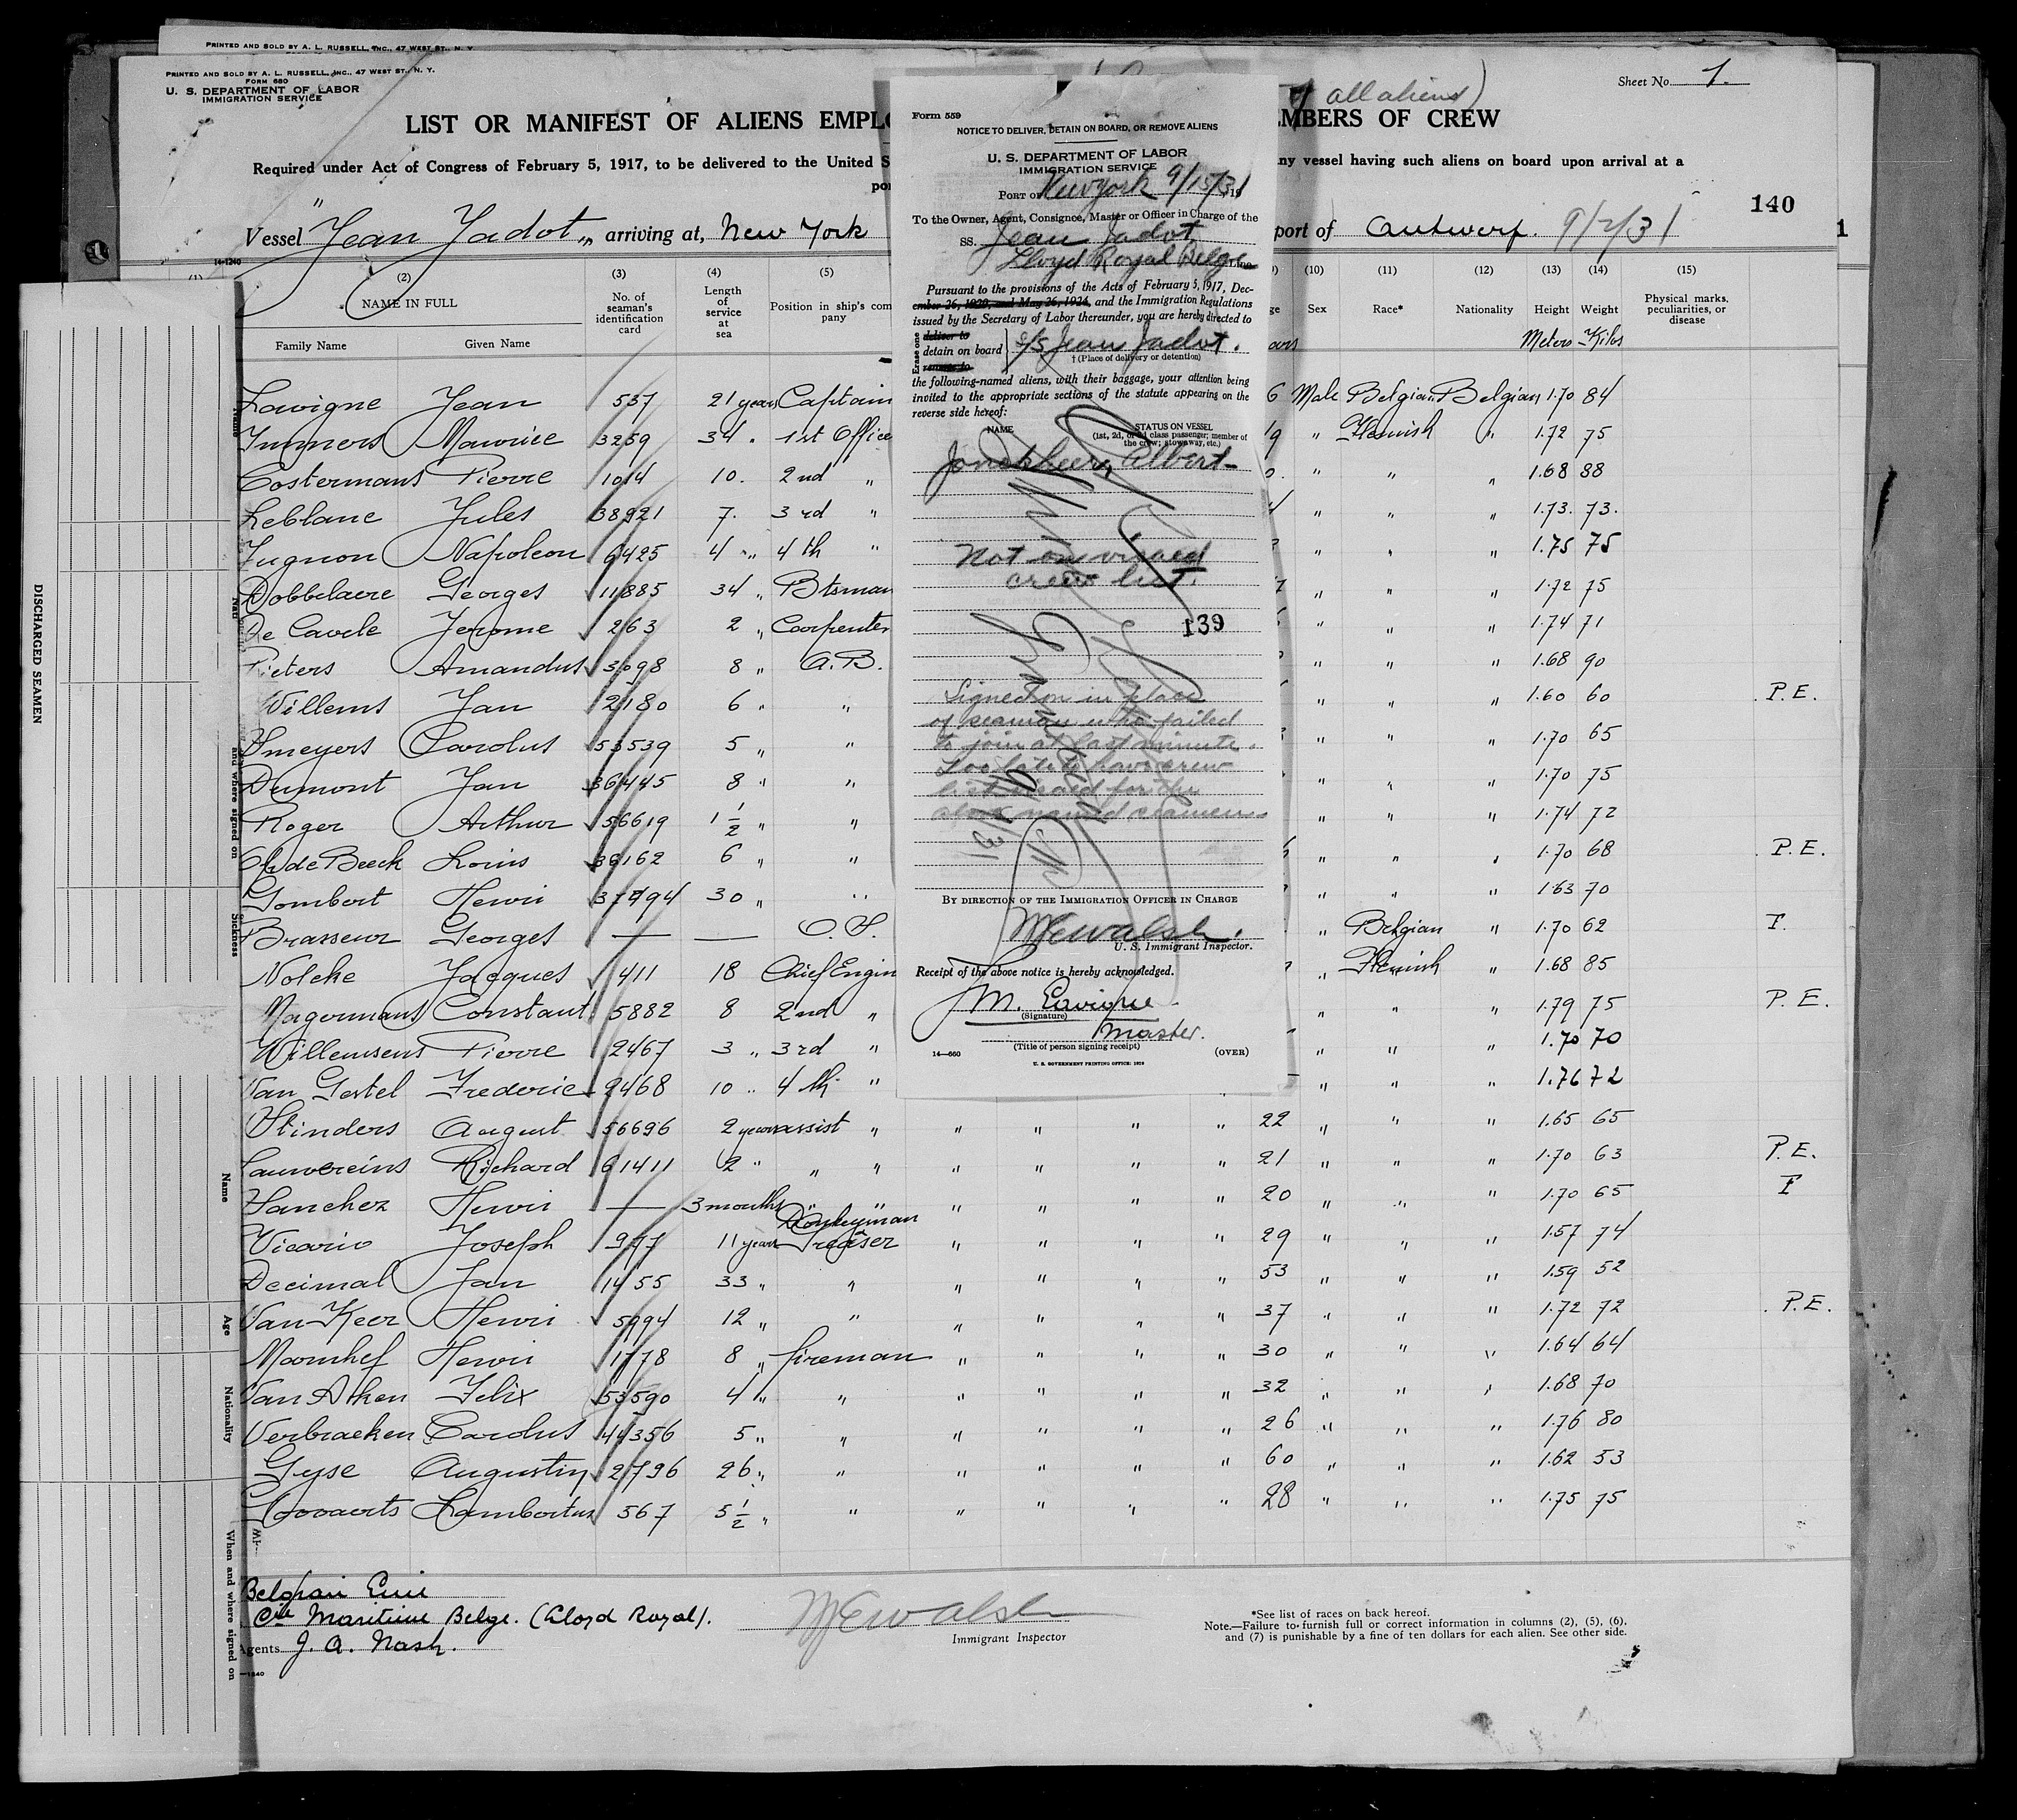 PRINTED AND SOLD BY A. L. RUSSELL, INC., 47 WEST ST., N. Y.
PRINTED AND SOLD BY A. L. RUSSELL, INC., 47 WEST ST., N. Y.
FORM 680
U. S. DEPARTMENT OF LABOR
IMMIGRATION SERVICE
Sheet No. 1.
all aliens)
LIST OR MANIFEST OF ALIENS EMPLO
MBERS OF CREW
Required under Act of Congress of February 5, 1917, to be delivered to the United S
ny vessel having such aliens on board upon arrival at a
por
140
Vessel "Jean Jadot" arriving at, New York
port of Antwerp. 9/2/31
1
14-1240
(2) (3) (4) (5)
(10) (11) (12) (13) (14) (15)
NAME IN FULL
Family Name Given Name
No. of seaman's identification card
Length of service at sea
Position in ship's company
Sex Race* Nationality Height Weight
Physical marks, peculiarities, or disease
Meters Kilos
Lavigne Jean 537 21 years Captain 6 Male Belgian Belgian 1.70 84
Maurice 3259 34 " 1st Office 9 " Flemish " 1.72 75
Costermans Pierre 1014 10. 2nd " " " " 1.68 88
Leblanc Jules 38921 7. 3rd " " " " 1.73. 73.
Napoleon 6425 4 " 4th " " " " 1.75 75
Dobbelaere Georges 11885 34 " Btsman " " " 1.72 75
De Cavele Jerome 263 2 " Carpenter " " " 1.74 71
Pieters Amandus 3098 8 " A.B. " " " 1.68 90
Willems Jan 2180 6 " " " " " 1.60 60 P.E.
Smeyers Carolus 53539 5 " " " " " 1.70 65
Dumont Jan 36445 8 " " " " " 1.70 75
Roger Arthur 56619 1 1/2 " " " " " 1.74 72
Op de Beeck Louis 36162 6 " " " " " 1.70 68 P.E.
Gombert Henri 30 " " " " " 1.63 70
Brasseur Georges — — O.S. " Belgian " 1.70 62 I.
Nolcke Jacques 411 18 Chief Engin " Flemish " 1.68 85
Magermans Constant 5882 8 2nd " " " " 1.79 75 P.E.
Willemsens Pierre 2467 3 " 3rd " " " " 1.70 70
Van Gestel Frederic 2468 10 " 4th " " " " 1.76 72
Stinders August 56696 2 years assist " " " " " 22 " " " 1.65 65
Lauwereins Richard 61411 2 " " " " " " " 21 " " " 1.70 63 P.E.
Sanchez Henri — 3 months " " " " " " 20 " " " 1.70 65 I
Donkeyman
Vicario Joseph 977 11 years Greaser " " " " 29 " " " 1.57 74
Decimal Jan 1455 33 " " " " " " 53 " " " 1.59 52
Van Keer Henri 5994 12 " " " " " " 37 " " " 1.72 72 P.E.
Henri 1778 8 " fireman " " " " 30 " " " 1.64 64
Van Aken Felix 53590 4 " " " " " " 32 " " " 1.68 70
Verbraeken Carolus 44356 5 " " " " " " 26 " " " 1.76 80
Gyse Augustin 2796 26 " " " " " " 60 " " " 1.62 53
Govaerts Lambertus 567 5 1/2 " " " " " " 28 " " " 1.75 75
Cie Maritime Belge. (Lloyd Royal).
Agents J. A. Nash.
M E Walsh
Immigrant Inspector
*See list of races on back hereof.
Note.—Failure to furnish full or correct information in columns (2), (5), (6),
and (7) is punishable by a fine of ten dollars for each alien. See other side.
Form 559
NOTICE TO DELIVER, DETAIN ON BOARD, OR REMOVE ALIENS
U. S. DEPARTMENT OF LABOR
IMMIGRATION SERVICE
PORT OF New York 9/15/31
To the Owner, Agent, Consignee, Master or Officer in Charge of the
SS. Jean Jadot
Lloyd Royal Belge
Pursuant to the provisions of the Acts of February 5, 1917, Dec-
ember 26, 1920, and May 26, 1924, and the Immigration Regulations
issued by the Secretary of Labor thereunder, you are hereby directed to
Erase one
deliver to
detain on board
remove to
S/S Jean Jadot.
† (Place of delivery or detention)
the following-named aliens, with their baggage, your attention being
invited to the appropriate sections of the statute appearing on the
reverse side hereof:
NAME
STATUS ON VESSEL
(1st, 2d, or 3d class passenger; member of
the crew; stowaway, etc.)
Jonckheere, Albert
Not on visaed
crew list.
139
Signed on in place
of seaman who failed
to join at last minute.
Too late to have crew
list visaed for the
above named seamen
BY DIRECTION OF THE IMMIGRATION OFFICER IN CHARGE
M E Walsh.
U. S. Immigrant Inspector.
Receipt of the above notice is hereby acknowledged.
M. Lavigne
(Signature)
Master.
(Title of person signing receipt)
14—660
(OVER)
U. S. GOVERNMENT PRINTING OFFICE: 1929
DISCHARGED SEAMEN
Name
and where signed on
Sickness
Name
Age
Nationality
When and where signed on